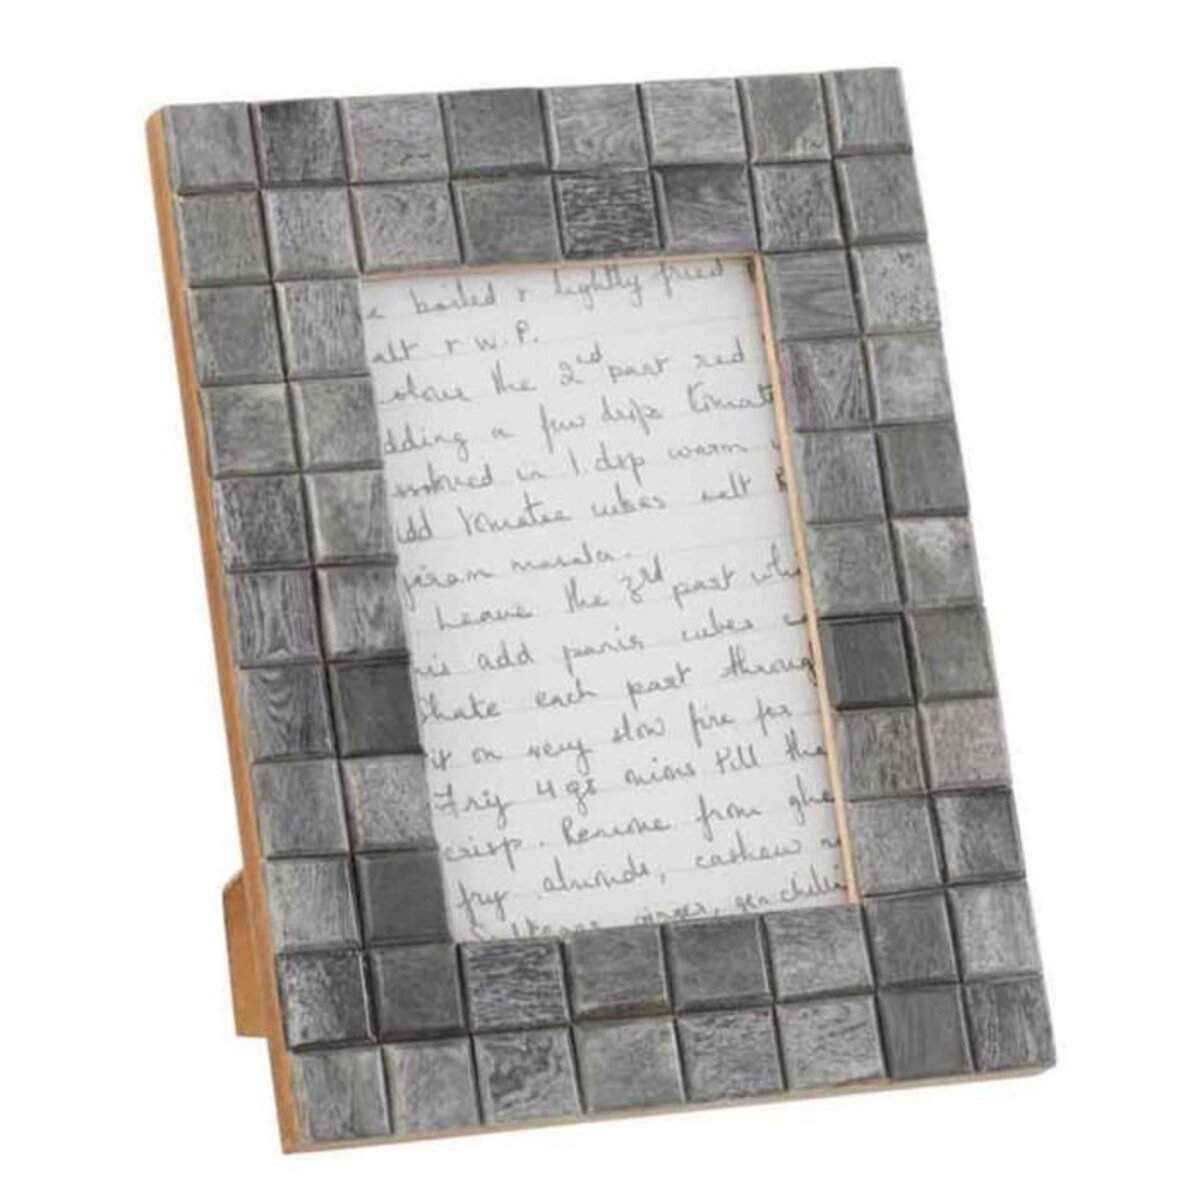 boiled & lightly fried
alt & W.P.
olour the 2nd part red
dding a few drops tomat
in 1 dsp warm
dd tomatoe cubes salt
garam masala.
Leave the 3rd part whi
his add panir cubes
Shake each part throug
it on very slow fire for
Fry 4 gs onions till the
crisp. Remove from ghe
fry almonds, cashew n
ginger, gr. chilli